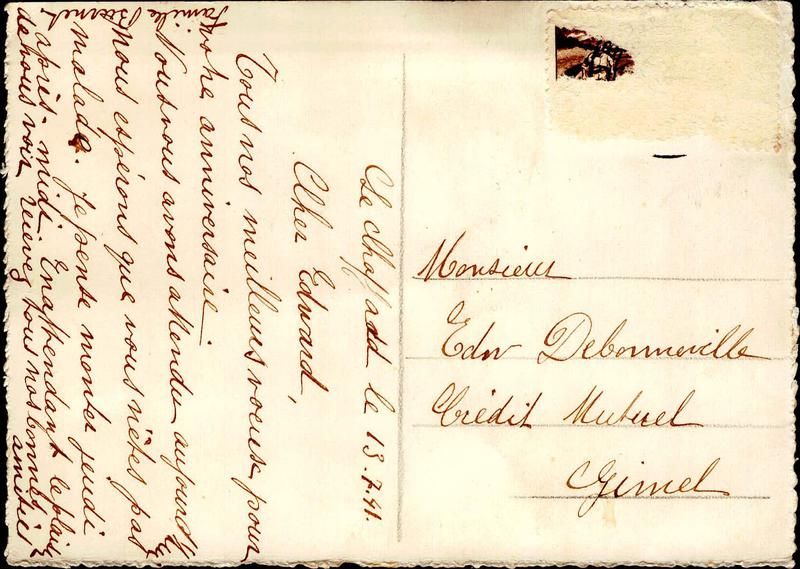 Le Chaffard le 13.7.41.
Cher Edward,
Tous nos meilleurs voeux pour
votre anniversaire.
Nous vous avons attendu aujourd'hui
nous espérons que vous n'êtes pas
malade. Je pense monter jeudi
après-midi. En attendant le plaisir
de vous voir recevez tous nos bonnes
amitiés
Famille
Monsieur
Edw Debonneville
Crédit Mutuel
Gimel